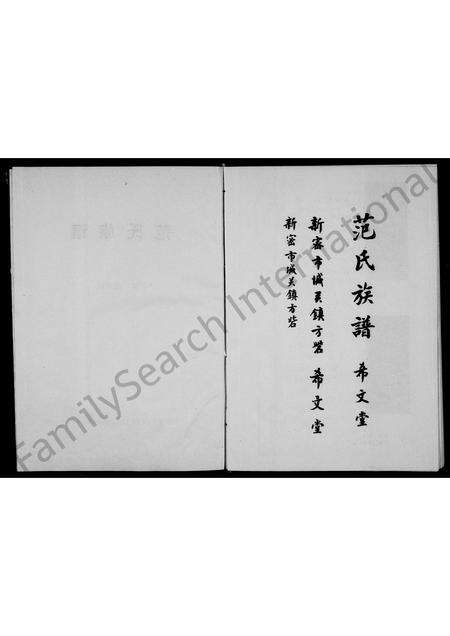 范氏族譜 希文堂
新密市城关鎮方砦 希文堂
新密市城关鎮方砦
范氏族譜
FamilySearch International